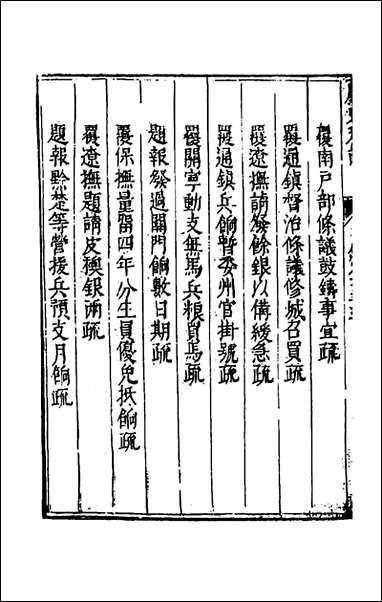 覆南戶部條議鼓鑄事宜疏
覆通鎮督治條議修城召買疏
覆遼撫請發餘銀以備緩急疏
覆通鎮兵餉暫委州官掛號疏
覆關寧動支無馬兵糧買馬疏
題報發過關門餉數日期疏
覆保撫量留四年分生員優免抵餉疏
覆遼撫題請皮襖銀兩疏
題報黔楚等營援兵預支月餉疏